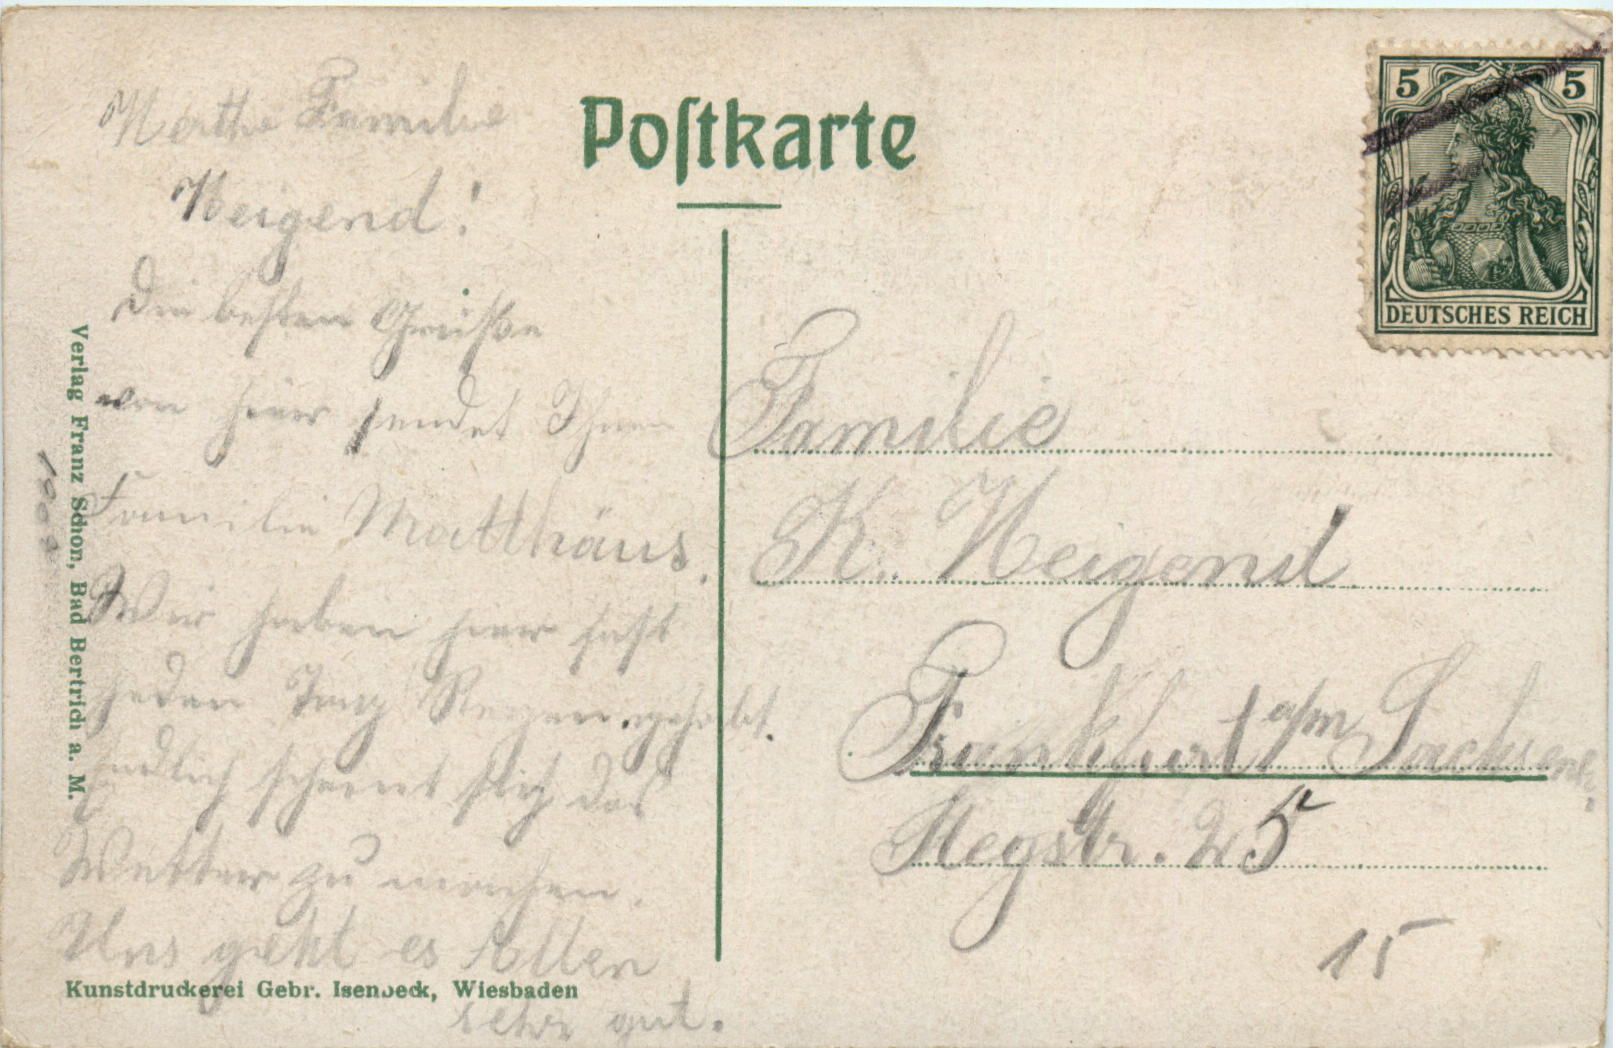 Postkarte
5 5
DEUTSCHES REICH
Werthe Familie
Weigend!
Die besten Grüße
von hier sendet Ihnen
Familie Matthäus.
Wir haben hier fast
jeden Tag Regen gehabt.
endlich scheint sich das
Wetter zu machen.
Uns geht es Allen
sehr gut.
Familie
K. Weigend
Frankfurt a/m Sachsenh.
Stegstr. 25
15
Verlag Franz Schön, Bad Bertrich a. M.
Kunstdruckerei Gebr. Isenbeck, Wiesbaden